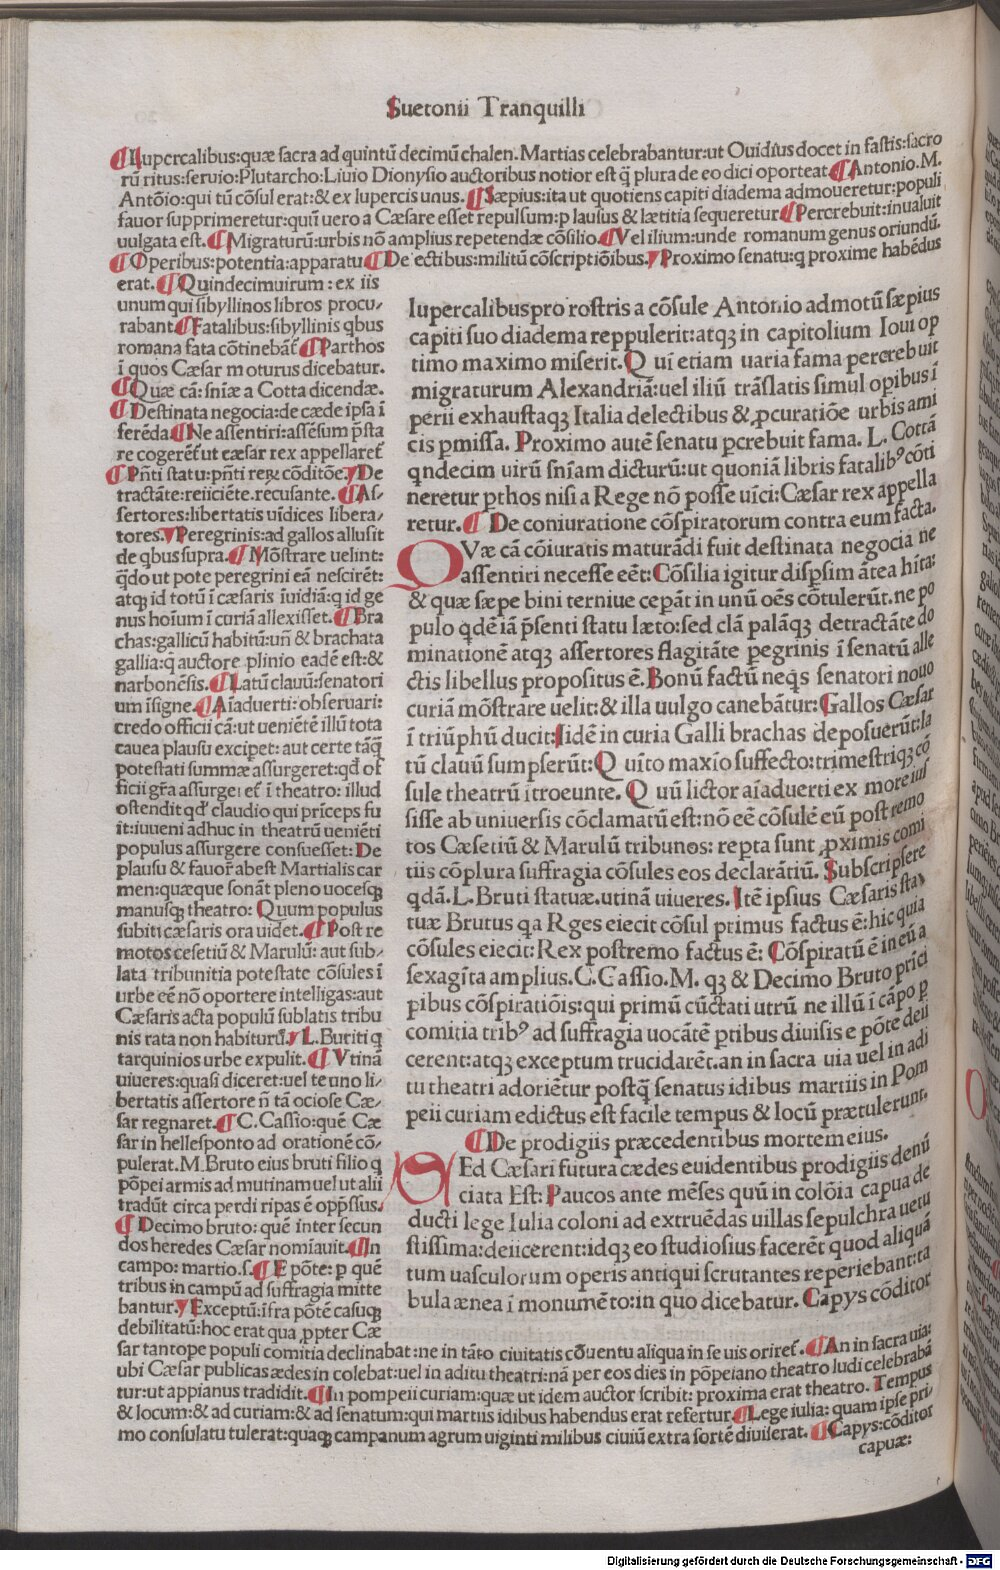 Suetonii Tranquilli
¶ Lupercalibus:quæ sacra ad quintũ decimũ chalen.Martias celebrabantur:ut Ouidius docet in fastis:sacro
rũ ritus:seruio:Plutarcho:Liuio Dionysio auctoribus notior est q̃ plura de eo dici oporteat ¶ Antonio.M.
Antõio:qui tũ cõsul erat:& ex lupercis unus. ¶ Sæpius:ita ut quotiens capiti diadema admoueretur:populi
fauor supprimeretur:quũ uero a Cæsare esset repulsum:p lausus & lætitia sequeretur ¶ Percrebuit:inualuit
uulgata est. ¶ Migraturũ:urbis nõ amplius repetendæ cõsilio. ¶ Vel ilium:unde romanum genus oriundũ.
¶ Operibus:potentia:apparatu ¶ De ectibus:militũ cõscriptiõibus. ¶ Proximo senatu:q proxime habẽdus
erat. ¶ Quindecimuirum: ex iis
unum qui sibyllinos libros procu/
rabant ¶ Fatalibus:sibyllinis qbus
romana fata cõtinebãt ¶ Parthos
ĩ quos Cæsar moturus dicebatur.
¶ Quæ cã:sniæ a Cotta dicendæ.
¶ Destinata negocia:de cæde ipsa ĩ
ferẽda ¶ Ne assentiri:assẽsum p̃sta
re cogerẽt ut cæsar rex appellaret
¶ Pñti statu:pñti reꝝ cõditõe. ¶ De
tractãte:reiiciẽte.recusante. ¶ As/
sertores:libertatis uĩdices libera/
tores. ¶ Peregrinis:ad gallos allusit
de qbus supra. ¶ Mõstrare uelint:
q̃do ut pote peregrini eã nescirẽt:
atqꝫ id totũ ĩ cæsaris ĩuidiã:q id ge
nus hoĩum ĩ curiã allexisset. ¶ Bra
chas:gallicũ habitũ:uñ & brachata
gallia:q̃ auctore plinio eadẽ est:&
narbonẽsis. ¶ Latũ clauũ:senatori
um ĩsigne. ¶ Aĩaduerti:obseruari:
credo officii cã:ut ueniẽtẽ illũ tota
cauea plausu excipet: aut certe tãq̃
potestati summæ assurgeret:qđ of
ficii gr̃a assurge: eť ĩ theatro: illud
ostendit qđ claudio qui prĩceps fu
it:iuueni adhuc in theatrũ ueniẽti
populus assurgere consuesset: De
plausu & fauor̃ abest Martialis car
men:quæque sonãt pleno uocesqꝫ
manusqꝫ theatro: Quum populus
subiti cæsaris ora uidet. ¶ Post re
motos cesetiũ & Marulũ: aut sub/
lata tribunitia potestate cõsules ĩ
urbe eẽ nõ oportere intelligas:aut
Cæsaris acta populũ sublatis tribu
nis rata non habiturũ. ¶ L.Buriti q
tarquinios urbe expulit. ¶ Vtinã
uiueres:quasi diceret:uel te uno li/
bertatis assertore ñ tã ociose Cæ/
sar regnaret. ¶ C.Cassio:quẽ Cæ
sar in hellesponto ad orationẽ cõ/
pulerat.M.Bruto eius bruti filio q
põpei armis ad mutinam uel ut alii
tradũt circa perdi ripas ẽ opp̃ssus.
¶ Decimo bruto: quẽ inter secun
dos heredes Cæsar nomĩauit. ¶ In
campo: martio.s. ¶ E põte: p quẽ
tribus in campũ ad suffragia mitte
bantur. ¶ Exceptũ:ĩfra põtẽ casuqꝫ
debilitatũ:hoc erat qua ,ppter Cæ
lupercalibus pro rostris a cõsule Antonio admotũ sæpius
capiti suo diadema reppulerit:atqꝫ in capitolium Ioui op
timo maximo miserit. Q ui etiam uaria fama percrebuit
migraturum Alexandriã:uel iliũ trãslatis simul opibus ĩ
perii exhaustaqꝫ Italia delectibus & ,pcuratiõe urbis ami
cis pmissa. Proximo autẽ senatu pcrebuit fama. L. Cottã
qndecim uirũ sniam dicturũ:ut quoniã libris fatalib⁹ cõti
neretur pthos nisi a Rege nõ posse uĩci:Cæsar rex appella
retur. ¶ De coniuratione cõspiratorum contra eum facta.
QVæ cã cõiuratis maturãdi fuit destinata negocia ne
assentiri necesse eẽt:Cõsilia igitur dispsim ãtea hĩta:
& quæ sæpe bini terniue cepãt in unũ oẽs cõtulerũt.ne po
pulo qdẽ iã p̃senti statu læto:sed clã palãqꝫ detractãte do
minationẽ atqꝫ assertores flagitãte pegrinis ĩ senatũ alle
ctis libellus propositus ẽ. Bonũ factũ neqs senatori nouo
curiã mõstrare uelit:& illa uulgo canebãtur: Gallos Cæsar
ĩ triũphũ ducit:Iidẽ in curia Galli brachas deposuerũt:la
tũ clauũ sumpserũt: Q uĩto maxĩo suffecto:trimestriqꝫ cõ
sule theatrũ ĩtroeunte. Q uũ lictor aĩaduerti ex more ius
sisse ab uniuersis cõclamatũ est:nõ eẽ cõsulẽ eũ post remo
tos Cæsetiũ & Marulũ tribunos: repta sunt ,pximis comi
tiis cõplura suffragia cõsules eos declarãtiũ. Subscripsere
qdã.L.Bruti statuæ.utinã uiueres. Itẽ ipsius Cæsaris sta/
tuæ Brutus qa Rges eiecit cõsul primus factus ẽ:hic quia
cõsules eiecit:Rex postremo factus ẽ: Cõspiratũ ẽ in eũ a
sexagĩta amplius.C.Cassio.M. qꝫ & Decimo Bruto prĩci
pibus cõspiratiõis:qui primũ cũctati utrũ ne illũ ĩ cãpo p
comitia trib⁹ ad suffragia uocãtẽ ptibus diuisis e põte deii
cerent:atqꝫ exceptum trucidarẽt.an in sacra uia uel in adi
tu theatri adoriẽtur postq̃ senatus idibus martiis in Pom
peii curiam edictus est facile tempus & locũ prætulerunt.
¶ De prodigiis præcedentibus mortem eius.
SEd Cæsari futura cædes euidentibus prodigiis denũ
ciata Est: Paucos ante mẽses quũ in colõia capua de
ducti lege Iulia coloni ad extruẽdas uillas sepulchra uetu
stissima:deiicerent:idqꝫ eo studiosius facerẽt quod aliquã
tum uasculorum operis antiqui scrutantes reperiebant:ta
bula ænea ĩ monumẽto:in quo dicebatur. Capys cõditor
sar tantope populi comitia declinabat:ne in tãto ciuitatis cõuentu aliqua in se uis oriref. ¶ An in sacra uia:
ubi Cæsar publicas ædes in colebat:uel in aditu theatri:nã per eos dies in põpeiano theatro ludi celebrabã
tur:ut appianus tradidit. ¶ In pompeii curiam:quæ ut idem auctor scribit: proxima erat theatro. Tempus
& locum:& ad curiam:& ad senatum:qui martiis idibus habendus erat refertur. ¶ Lege iulia: quam ipse pri/
mo consulatu tulerat:quaqꝫ campanum agrum uiginti milibus ciuiũ extra sortẽ diuiserat. ¶ Capys:cõditor
capuæ:
Digitalisierung gefördert durch die Deutsche Forschungsgemeinschaft - DFG